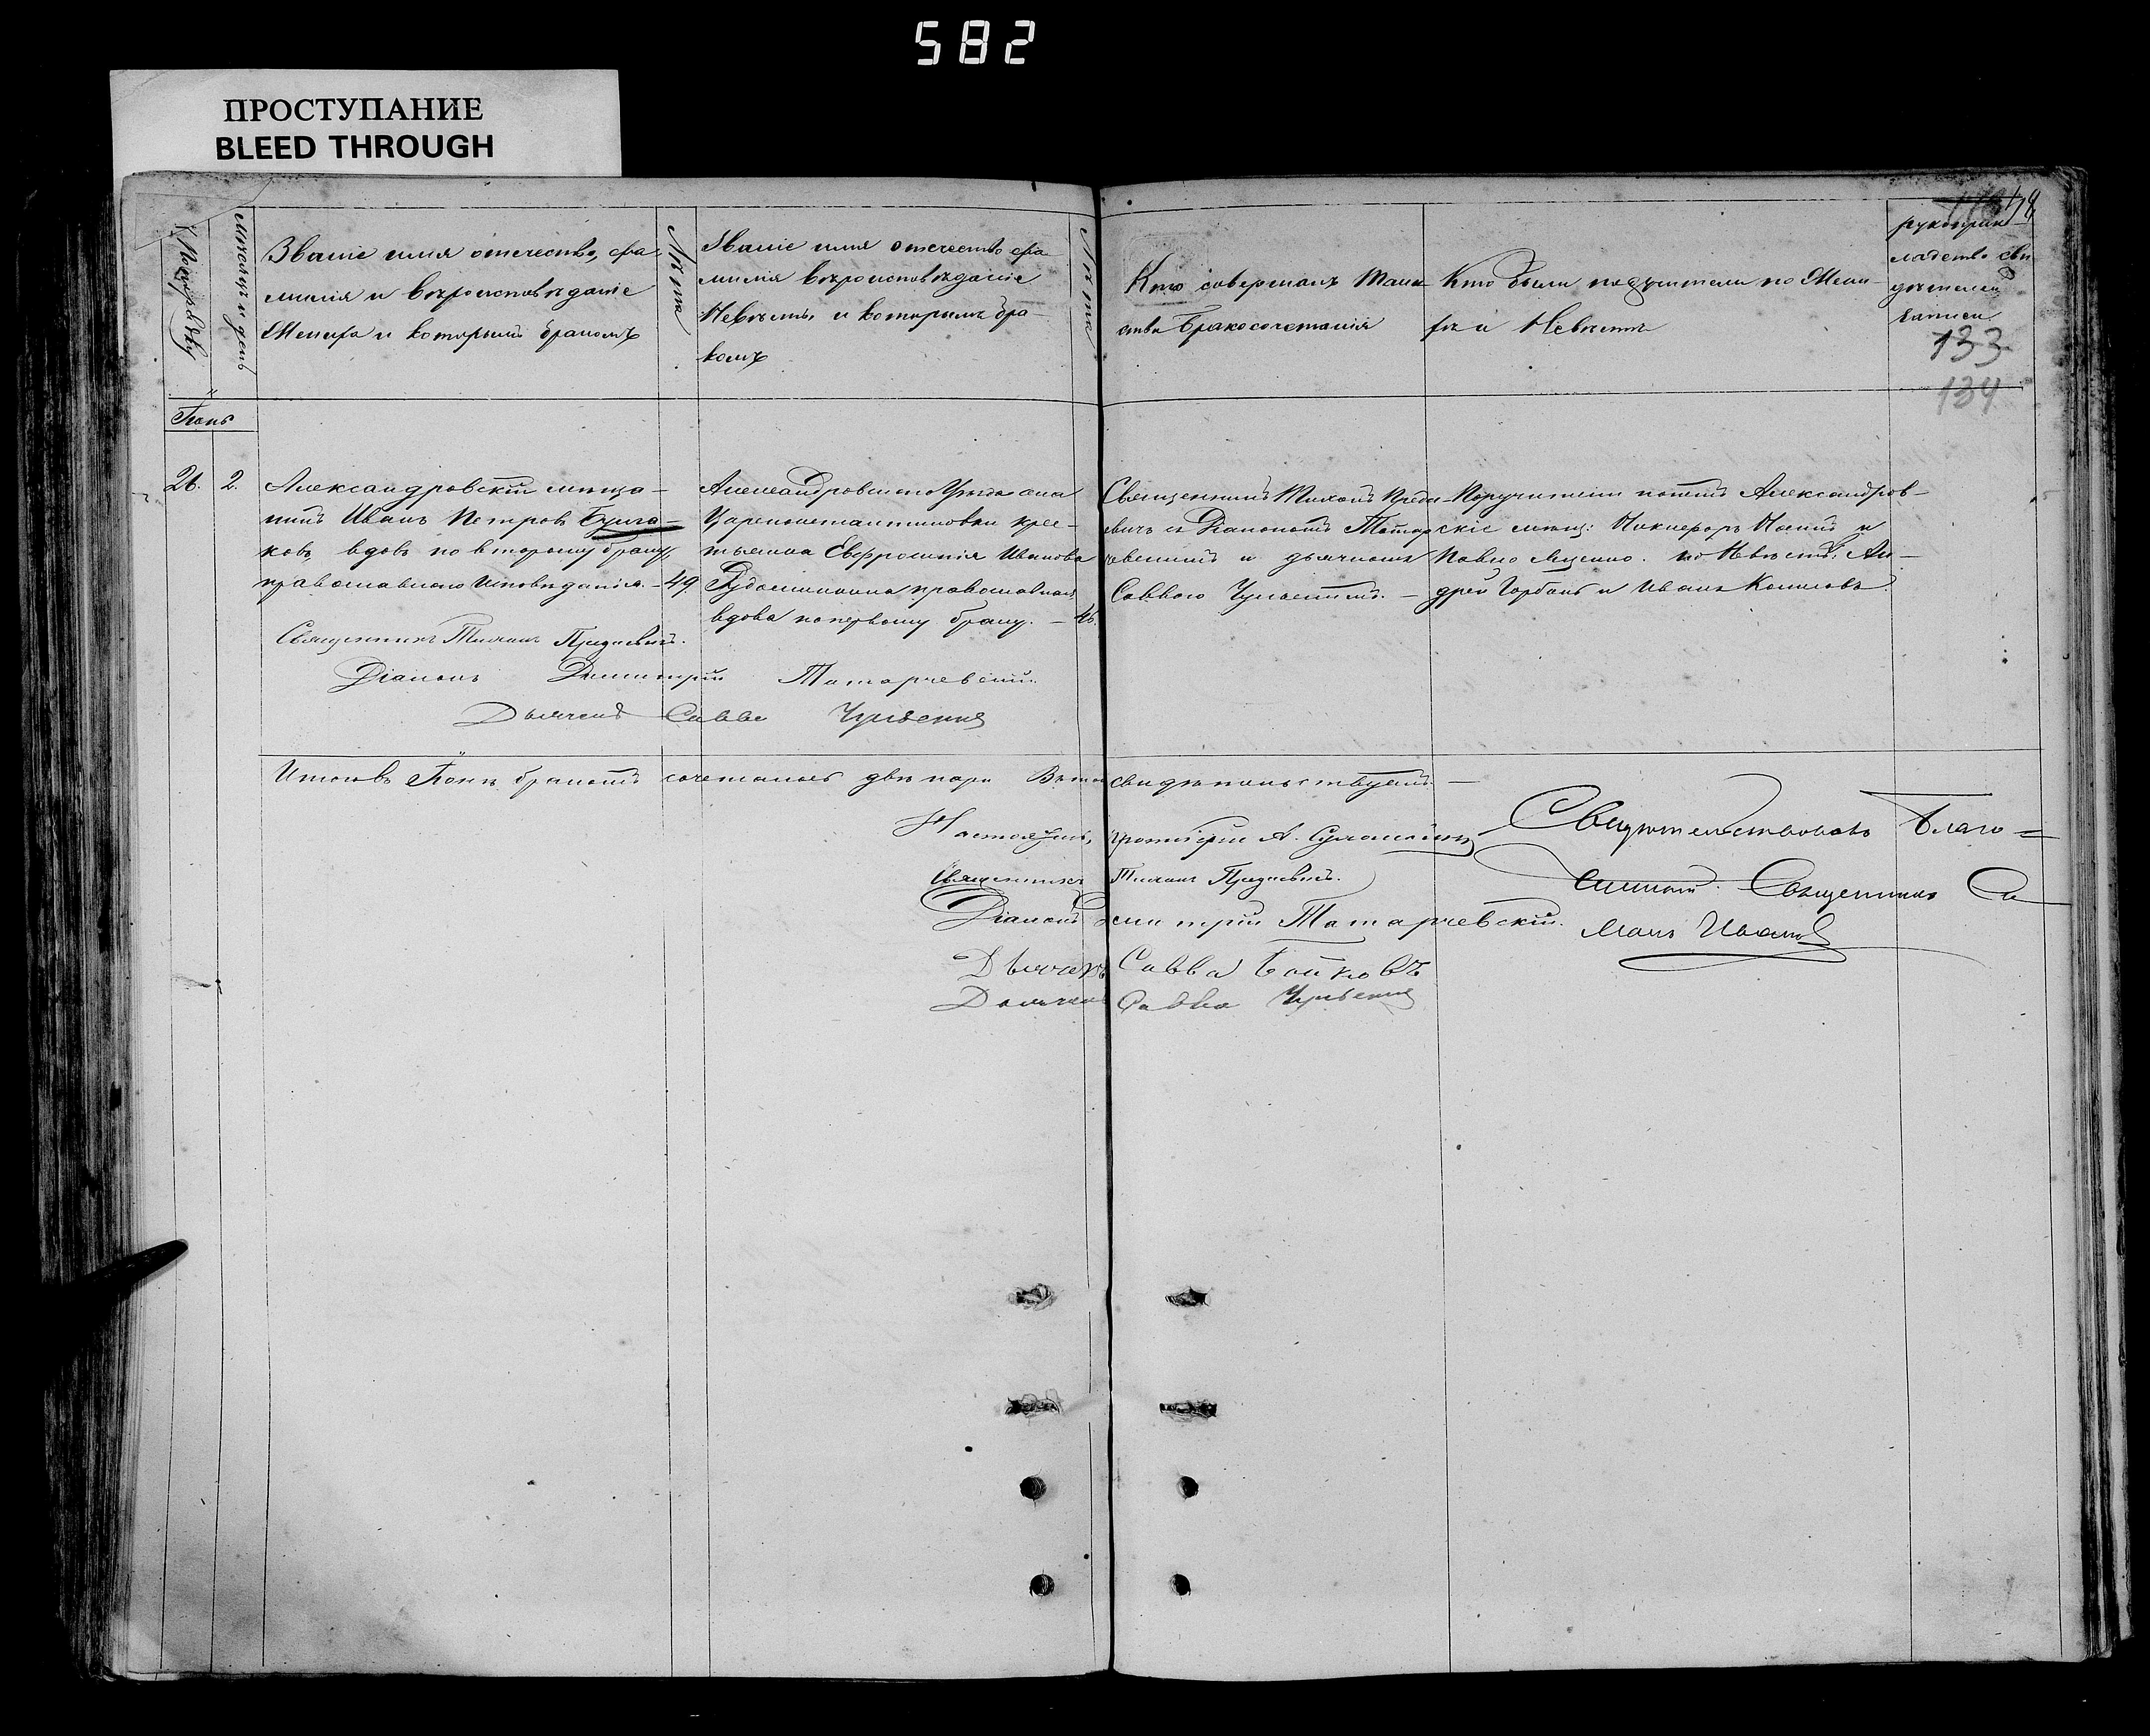 582
ПРОСТУПАНИЕ
BLEED THROUGH
Мѣсяцъ и день
Званіе имя отечество, фа-
милія и вѣроисповѣданіе
Жениха и которымъ бракомъ
Лѣта
Званіе имя отечество фа
милія вѣроисповѣданіе
Невѣсты, и которымъ бра-
комъ
Лѣта
Кто совершалъ Таин
ство Бракосочетанія
Кто были поручители по Жени-
хѣ и Невѣстѣ
рукоприк
ладство сви
дѣтелей
записи
133
134
Іюнь
26.
2.
Александровскій мѣща-
нинъ Иванъ Петровъ Булга-
ковъ, вдовъ по второму браку,
православнаго исповѣданія. - 49.
Александровскаго Уѣзда села
Цареконстантиновки крес-
тьянка Евфросинія Иванова
православная
вдова по первому браку. - 46.
Священникъ Тихонъ
евичъ съ Діакономъ Татар
чевскимъ и дьячкомъ
Саввою -
Поручители по немъ Александров-
скіе мѣщ: Никифоръ и
Павло Яценко. по Невѣстѣ: Ан-
дрей Горбань и Иванъ
Священникъ Тихонъ
Діаконъ Димитрій Татарчевскій
Дьячекъ Савва
Итого въ Іюнѣ бракомъ сочеталось двѣ пары Въ томъ свидѣтельствуемъ. -
Настоятель, протоіерей А.
Священникъ Тихонъ
Діаконъ Димитрій Татарчевскій.
Дьячекъ Савва Бойковъ
Дьячекъ Савва
Свидѣтельствовалъ Благо=
чинный Священникъ Си
меонъ Ивановъ